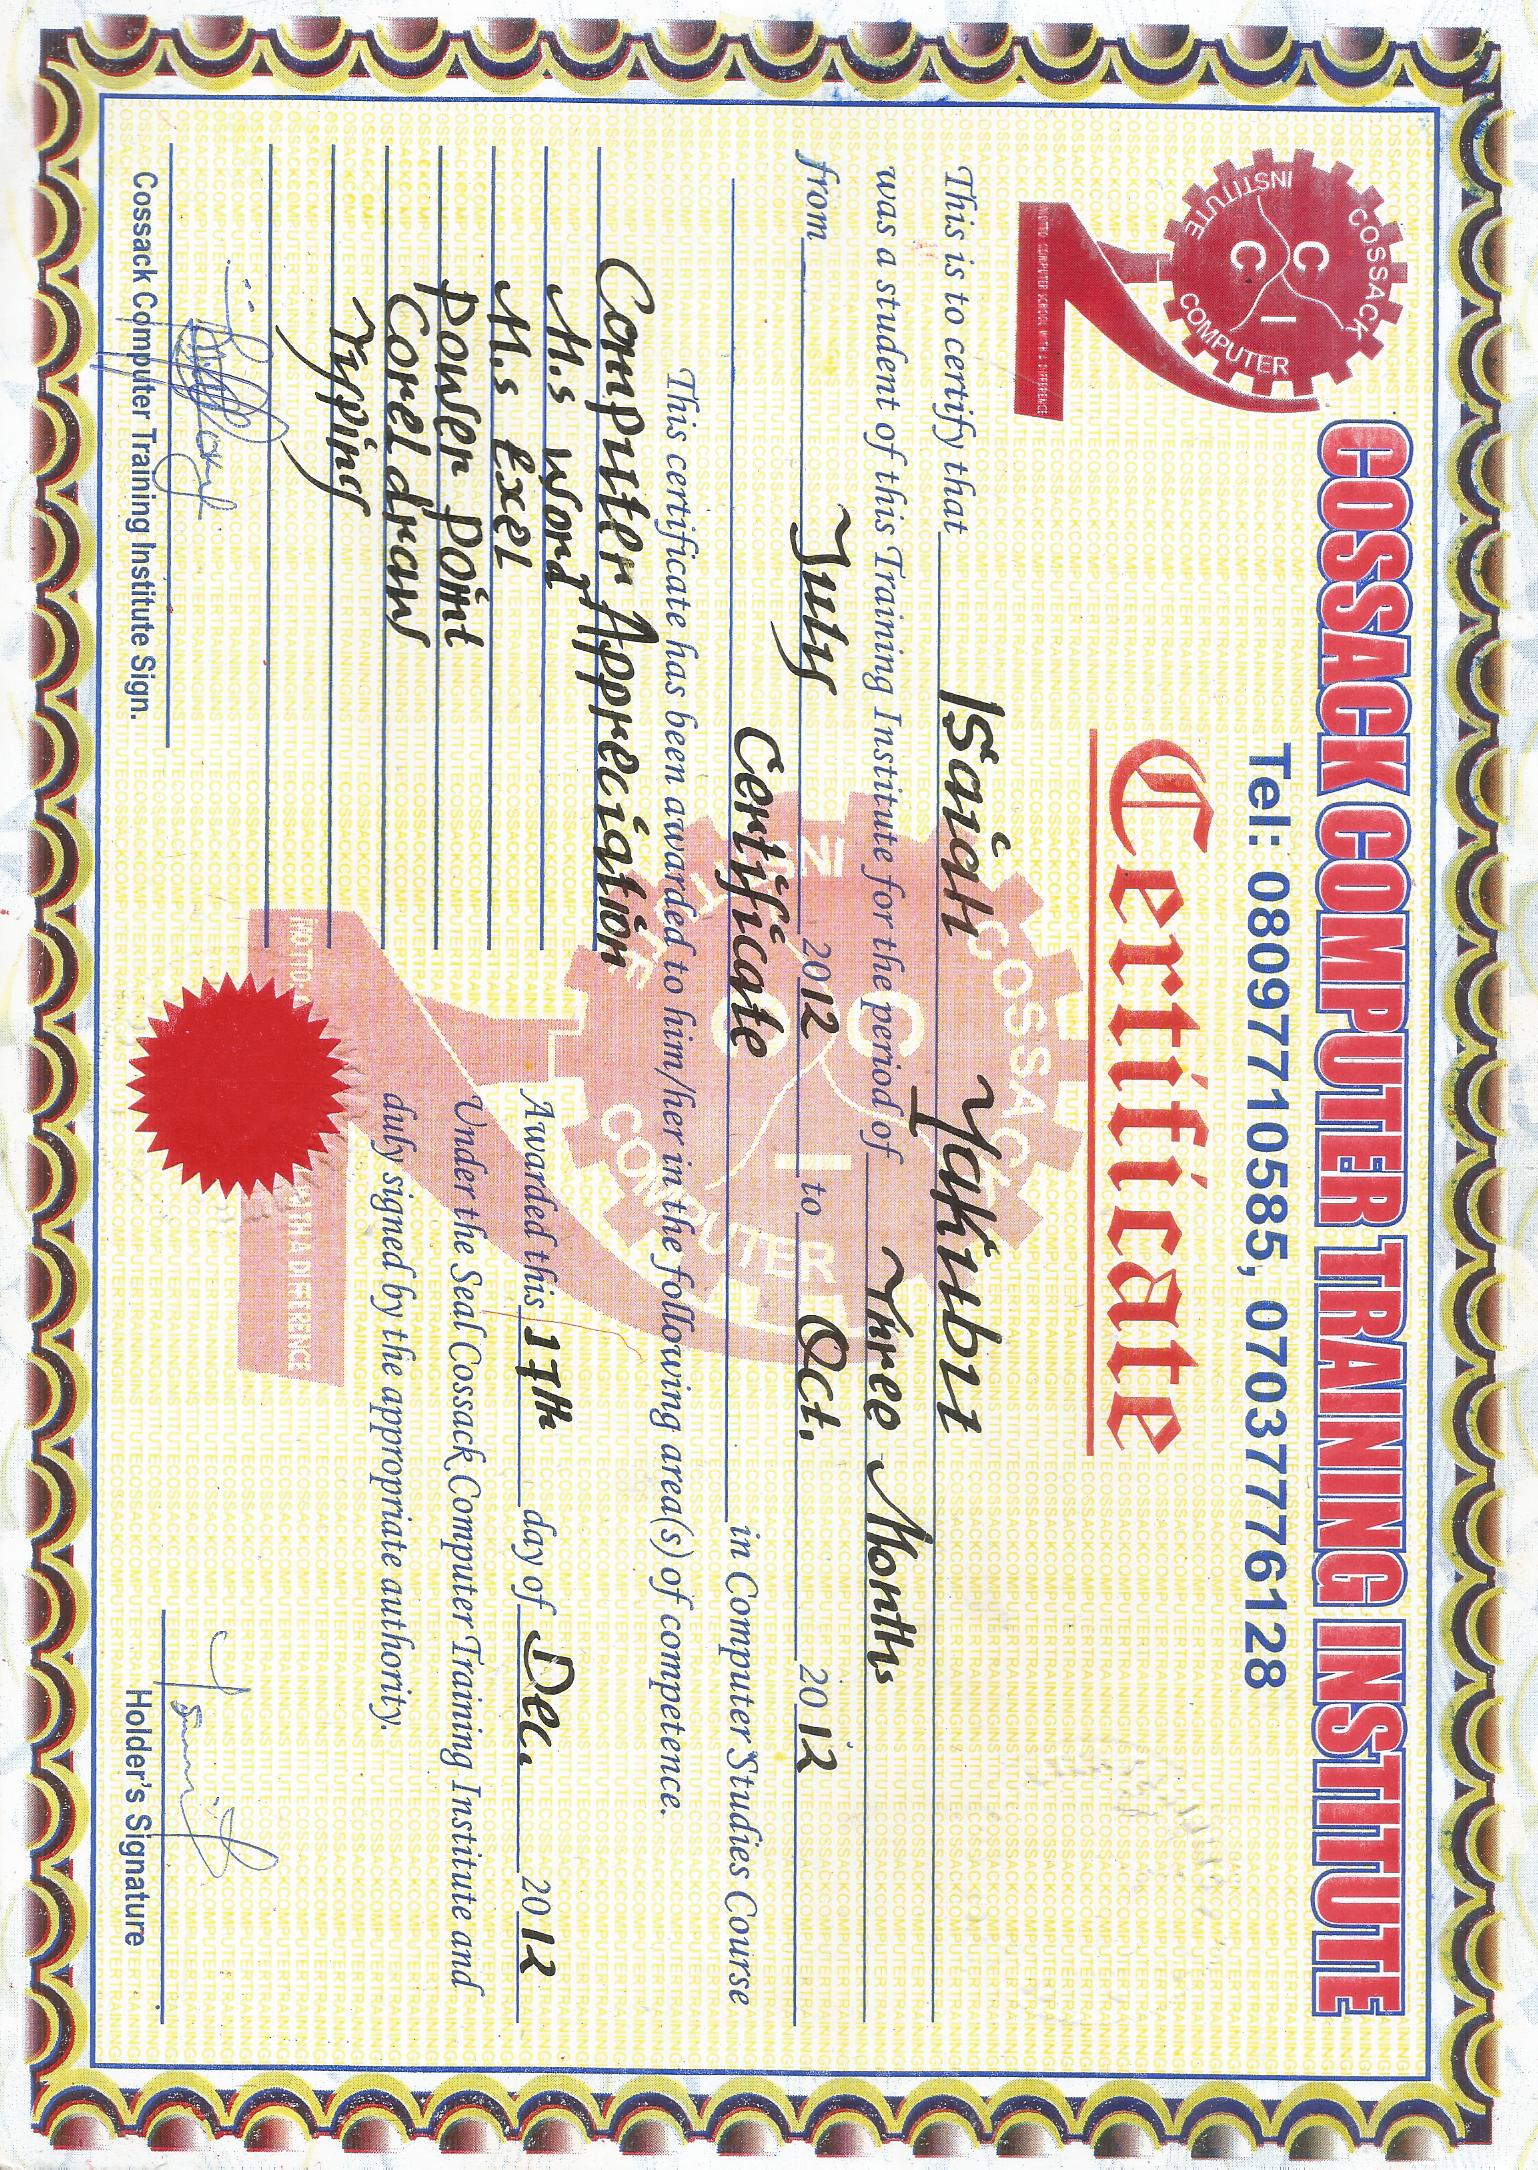 COSSACK COMPUTER TRAINING INSTITUTE
Tel: 08097710585, 07037776128
COSSACK COMPUTER INSTITUTE
C C I
MOTTO: COMPUTER SCHOOL WITH A DIFFERENCE
Certificate
This is to certify that Isaiah Yakubu
was a student of this Training Institute for the period of Three Months
from July 2012 to Oct. 2012
Certificate in Computer Studies Course
This certificate has been awarded to him/her in the following area(s) of competence.
Computer Appreciation
M.s Word
M.s Exel
Power Point
Corel draw
Typing
Awarded this 17th day of Dec. 2012
Under the Seal Cossack Computer Training Institute and
duly signed by the appropriate authority.
Cossack Computer Training Institute Sign.
Holder's Signature